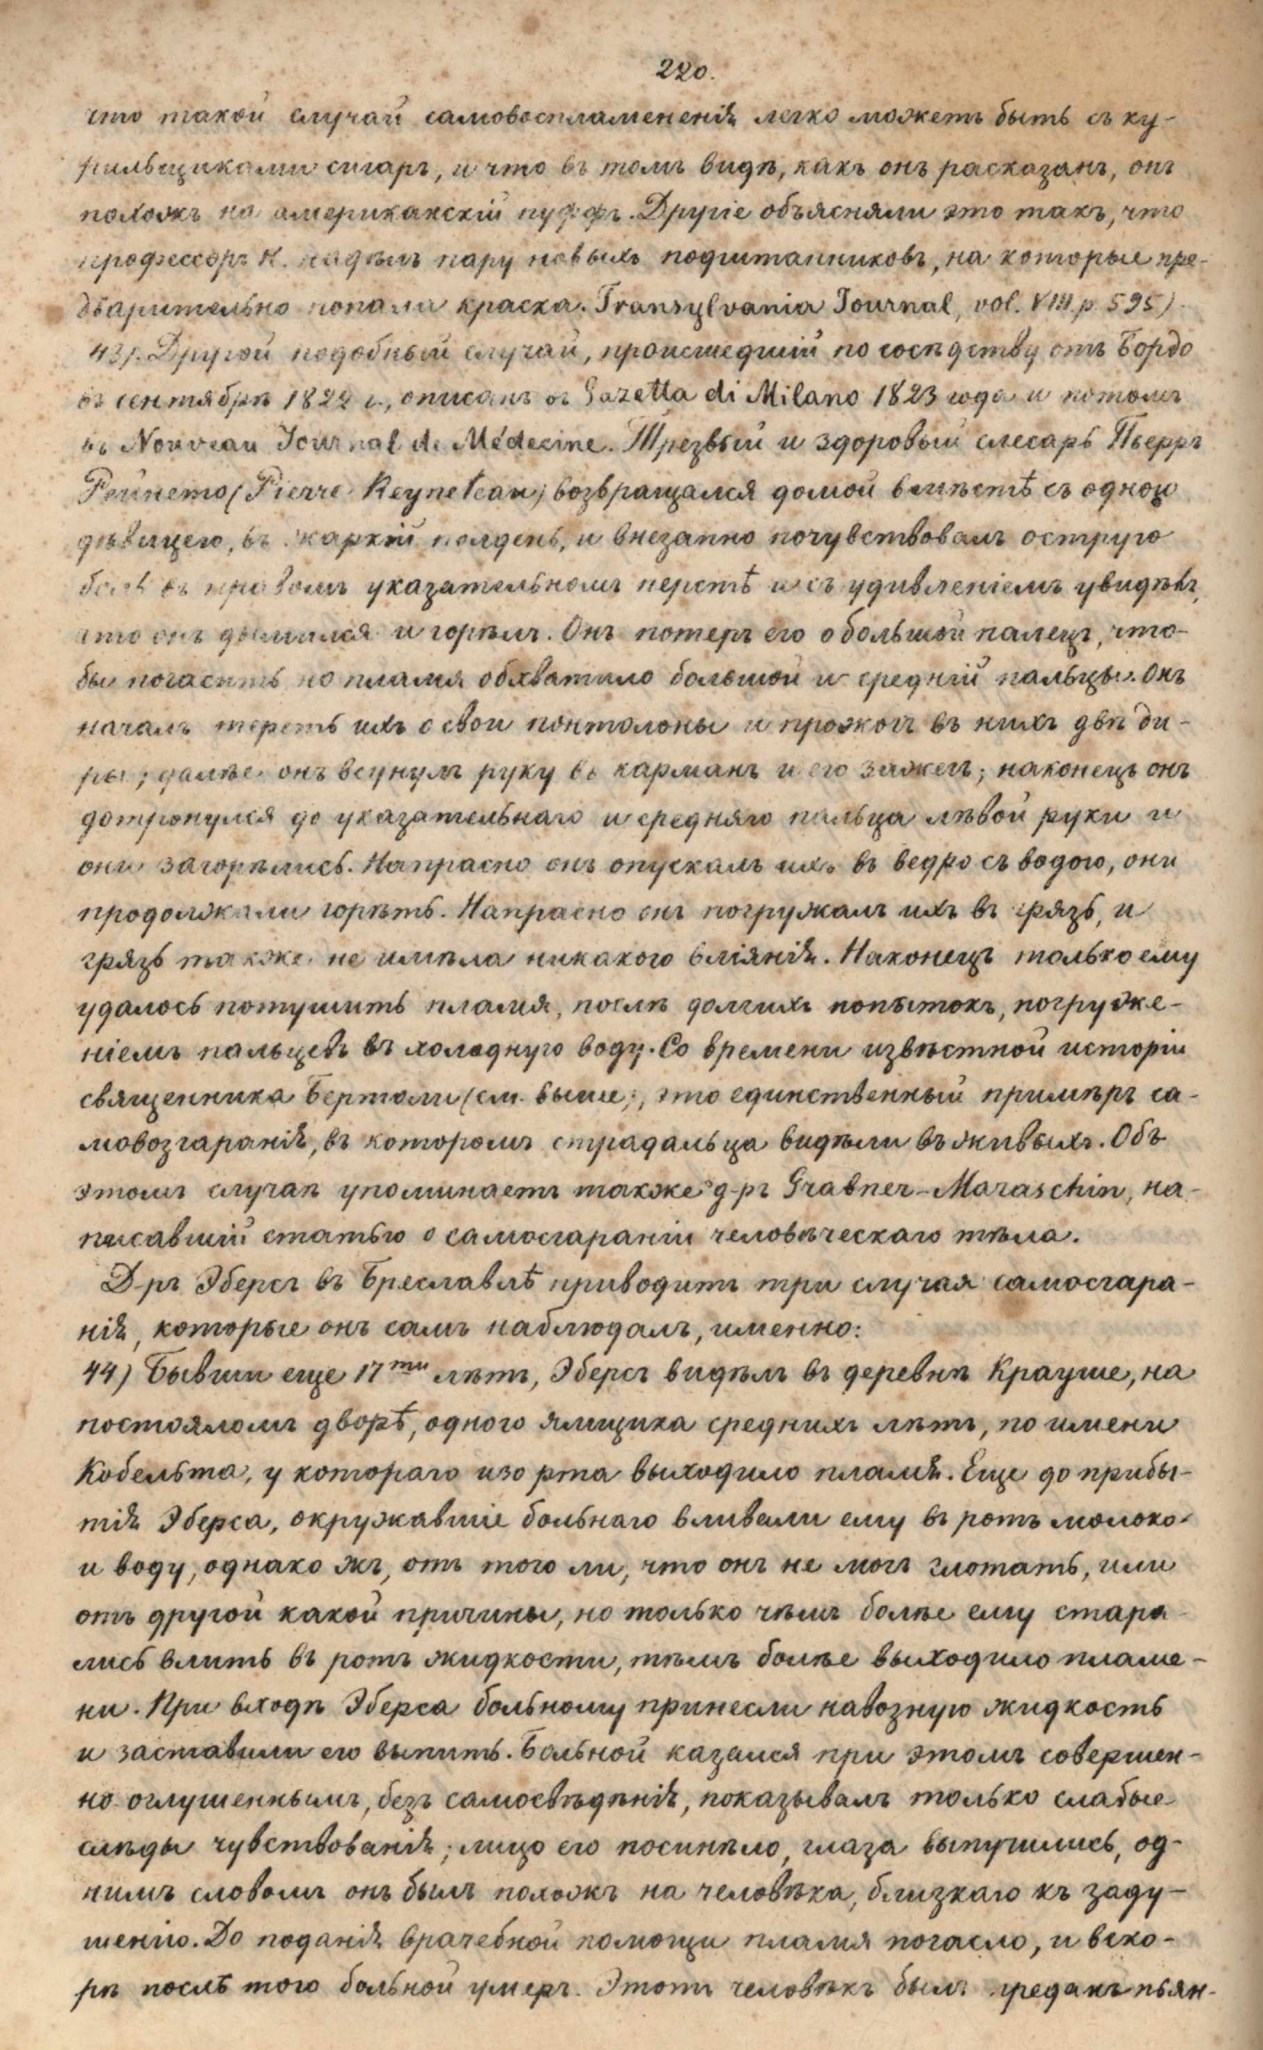 220.
что такой случай самовоспламененія легко можетъ быть съ ку-
рильщиками сигаръ, и что въ томъ видѣ, какъ онъ расказанъ, онъ
похожъ на американскій пуффъ. Другіе объясняли это такъ, что
профессоръ Н. надѣлъ пару новыхъ подштанниковъ, на которые пре-
дварительно попала краска. Transylvania Journal, vol. VIII. p. 595).
43). Другой подобный случай, происшедшій по сосѣдству отъ Бордо
въ сентябрѣ 1822 г., описанъ въ Gazetta di Milano 1823 года и потомъ
въ Nouveau Journal de Médecine. Трезвый и здоровый слесарь Пьерръ
Рейнето (Pierre Reyneteau) возвращался домой вмѣстѣ съ одною
дѣвицею, въ жаркій полдень, и внезапно почувствовалъ острую
боль въ правомъ указательномъ перстѣ и съ удивленіемъ увидѣлъ,
что онъ дымился и горѣлъ. Онъ потеръ его о большой палецъ, что-
бы погасить, но пламя обхватило большой и средній пальцы. Онъ
началъ тереть ихъ о свои понтолоны и прожогъ въ нихъ двѣ ди-
ры; далѣе онъ всунулъ руку въ карманъ и его зажегъ; наконецъ онъ
дотронулся до указательнаго и средняго пальца лѣвой руки и
они загорѣлись. Напрасно онъ опускалъ ихъ въ ведро съ водою, они
продолжали горѣть. Напрасно онъ погружалъ ихъ въ грязь, и
грязь также не имѣла никакого вліянія. Наконецъ только ему
удалось потушить пламя, послѣ долгихъ попытокъ, погруже-
ніемъ пальцевъ въ холодную воду. Со времени извѣстной исторіи
священника Бертоли (см. выше), это единственный примѣръ са-
мовозгаранія, въ которомъ страдальца видѣли въ живыхъ. Объ
этомъ случаѣ упоминаетъ также д-ръ Grabner-Maraschin, на-
писавшій статью о самосгараніи человѣческаго тѣла.
Д-ръ Эберсъ въ Бреславлѣ приводитъ три случая самосгара-
нія, которые онъ самъ наблюдалъ, именно:
44) Бывши еще 17ти лѣтъ, Эберсъ видѣлъ въ деревнѣ Крауше, на
постояломъ дворѣ, одного ямщика среднихъ лѣтъ, по имени
Кобельта, у котораго изо рта выходило пламя. Еще до прибы-
тія Эберса, окружавшіе больнаго вливали ему въ ротъ молоко
и воду, однако жъ, отъ того ли, что онъ не могъ глотать, или
отъ другой какой причины, но только чѣмъ болѣе ему стара-
лись влить въ ротъ жидкости, тѣмъ болѣе выходило пламе-
ни. При входѣ Эберса больному принесли навозную жидкость
и заставили его выпить. Больной казался при этомъ совершен-
но оглушеннымъ, безъ самосвѣдѣнія, показывалъ только слабые
слѣды чувствованія; лицо его посинѣло, глаза выпучились, од-
нимъ словомъ онъ былъ похожъ на человѣка, близкаго къ заду-
шенію. До поданія врачебной помощи пламя погасло, и вско-
рѣ послѣ того больной умеръ. Этотъ человѣкъ былъ преданъ пьян-